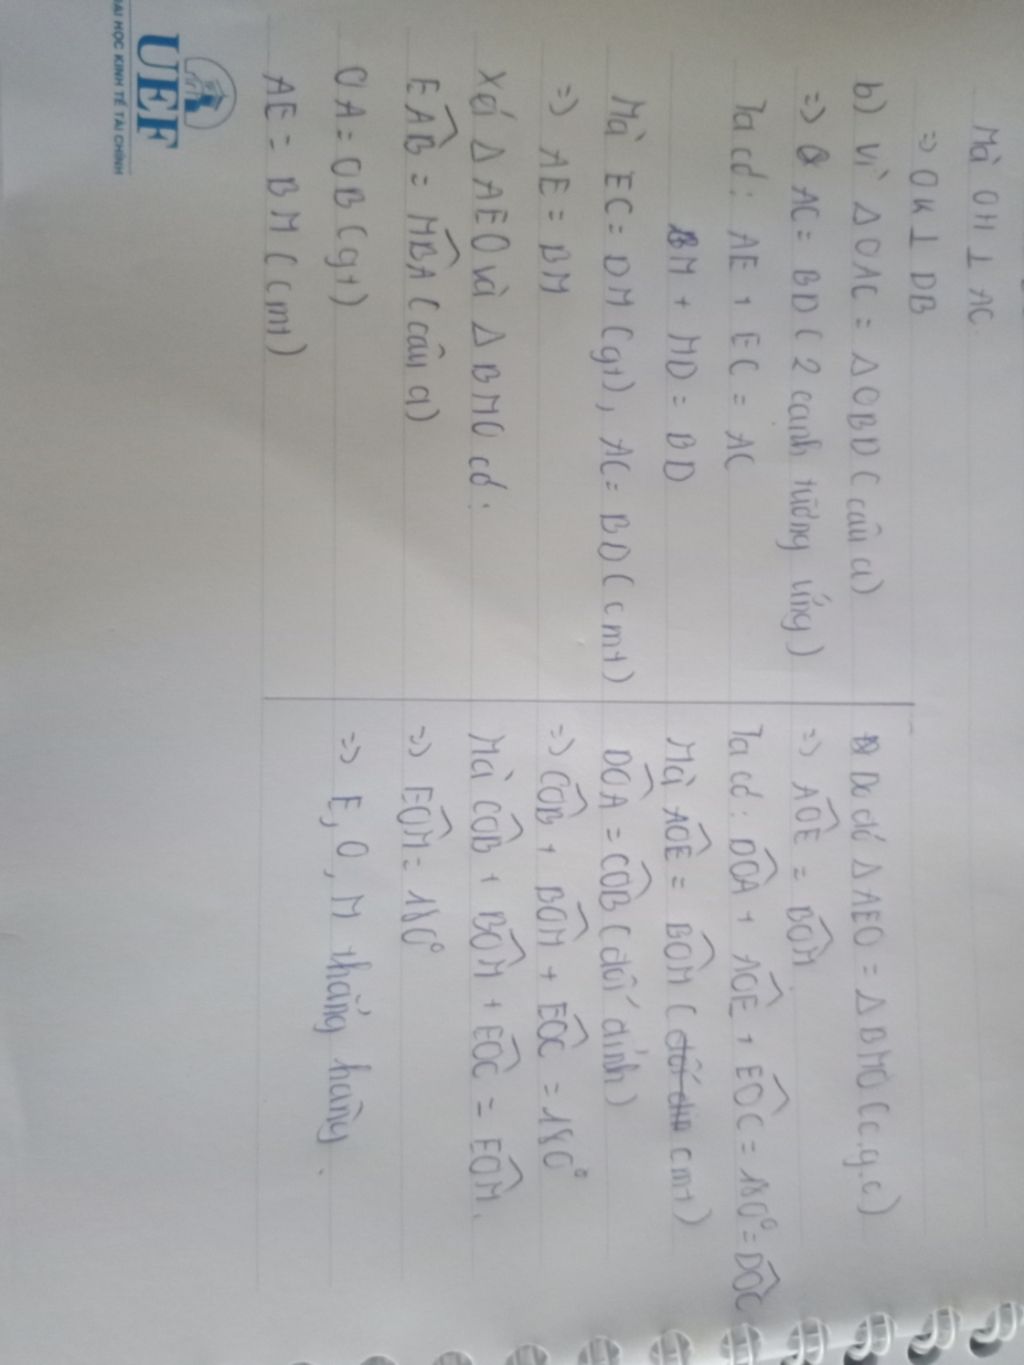 Mà OH ⊥ AC
=> OK ⊥ DB
b) Vì ΔOAC = ΔOBD (câu a)
=> AC = BD (2 cạnh tương ứng)
Ta có: AE + EC = AC
BM + MD = BD
Mà EC = DM (gt), AC = BD (cmt)
=> AE = BM
Xét ΔAEO và ΔBMO có:
EAB = MBA (câu a)
OA = OB (gt)
AE = BM (cmt)
Do đó ΔAEO = ΔBMO (c.g.c)
=> AOE = BOM
Ta có: DOA + AOE + EOC = 180° = DOC
Mà AOE = BOM (cmt)
DOA = COB (đối đỉnh)
=> COB + BOM + EOC = 180°
Mà COB + BOM + EOC = EOM.
=> EOM = 180°
=> E, O, M thẳng hàng.
UEF
ĐẠI HỌC KINH TẾ TÀI CHÍNH